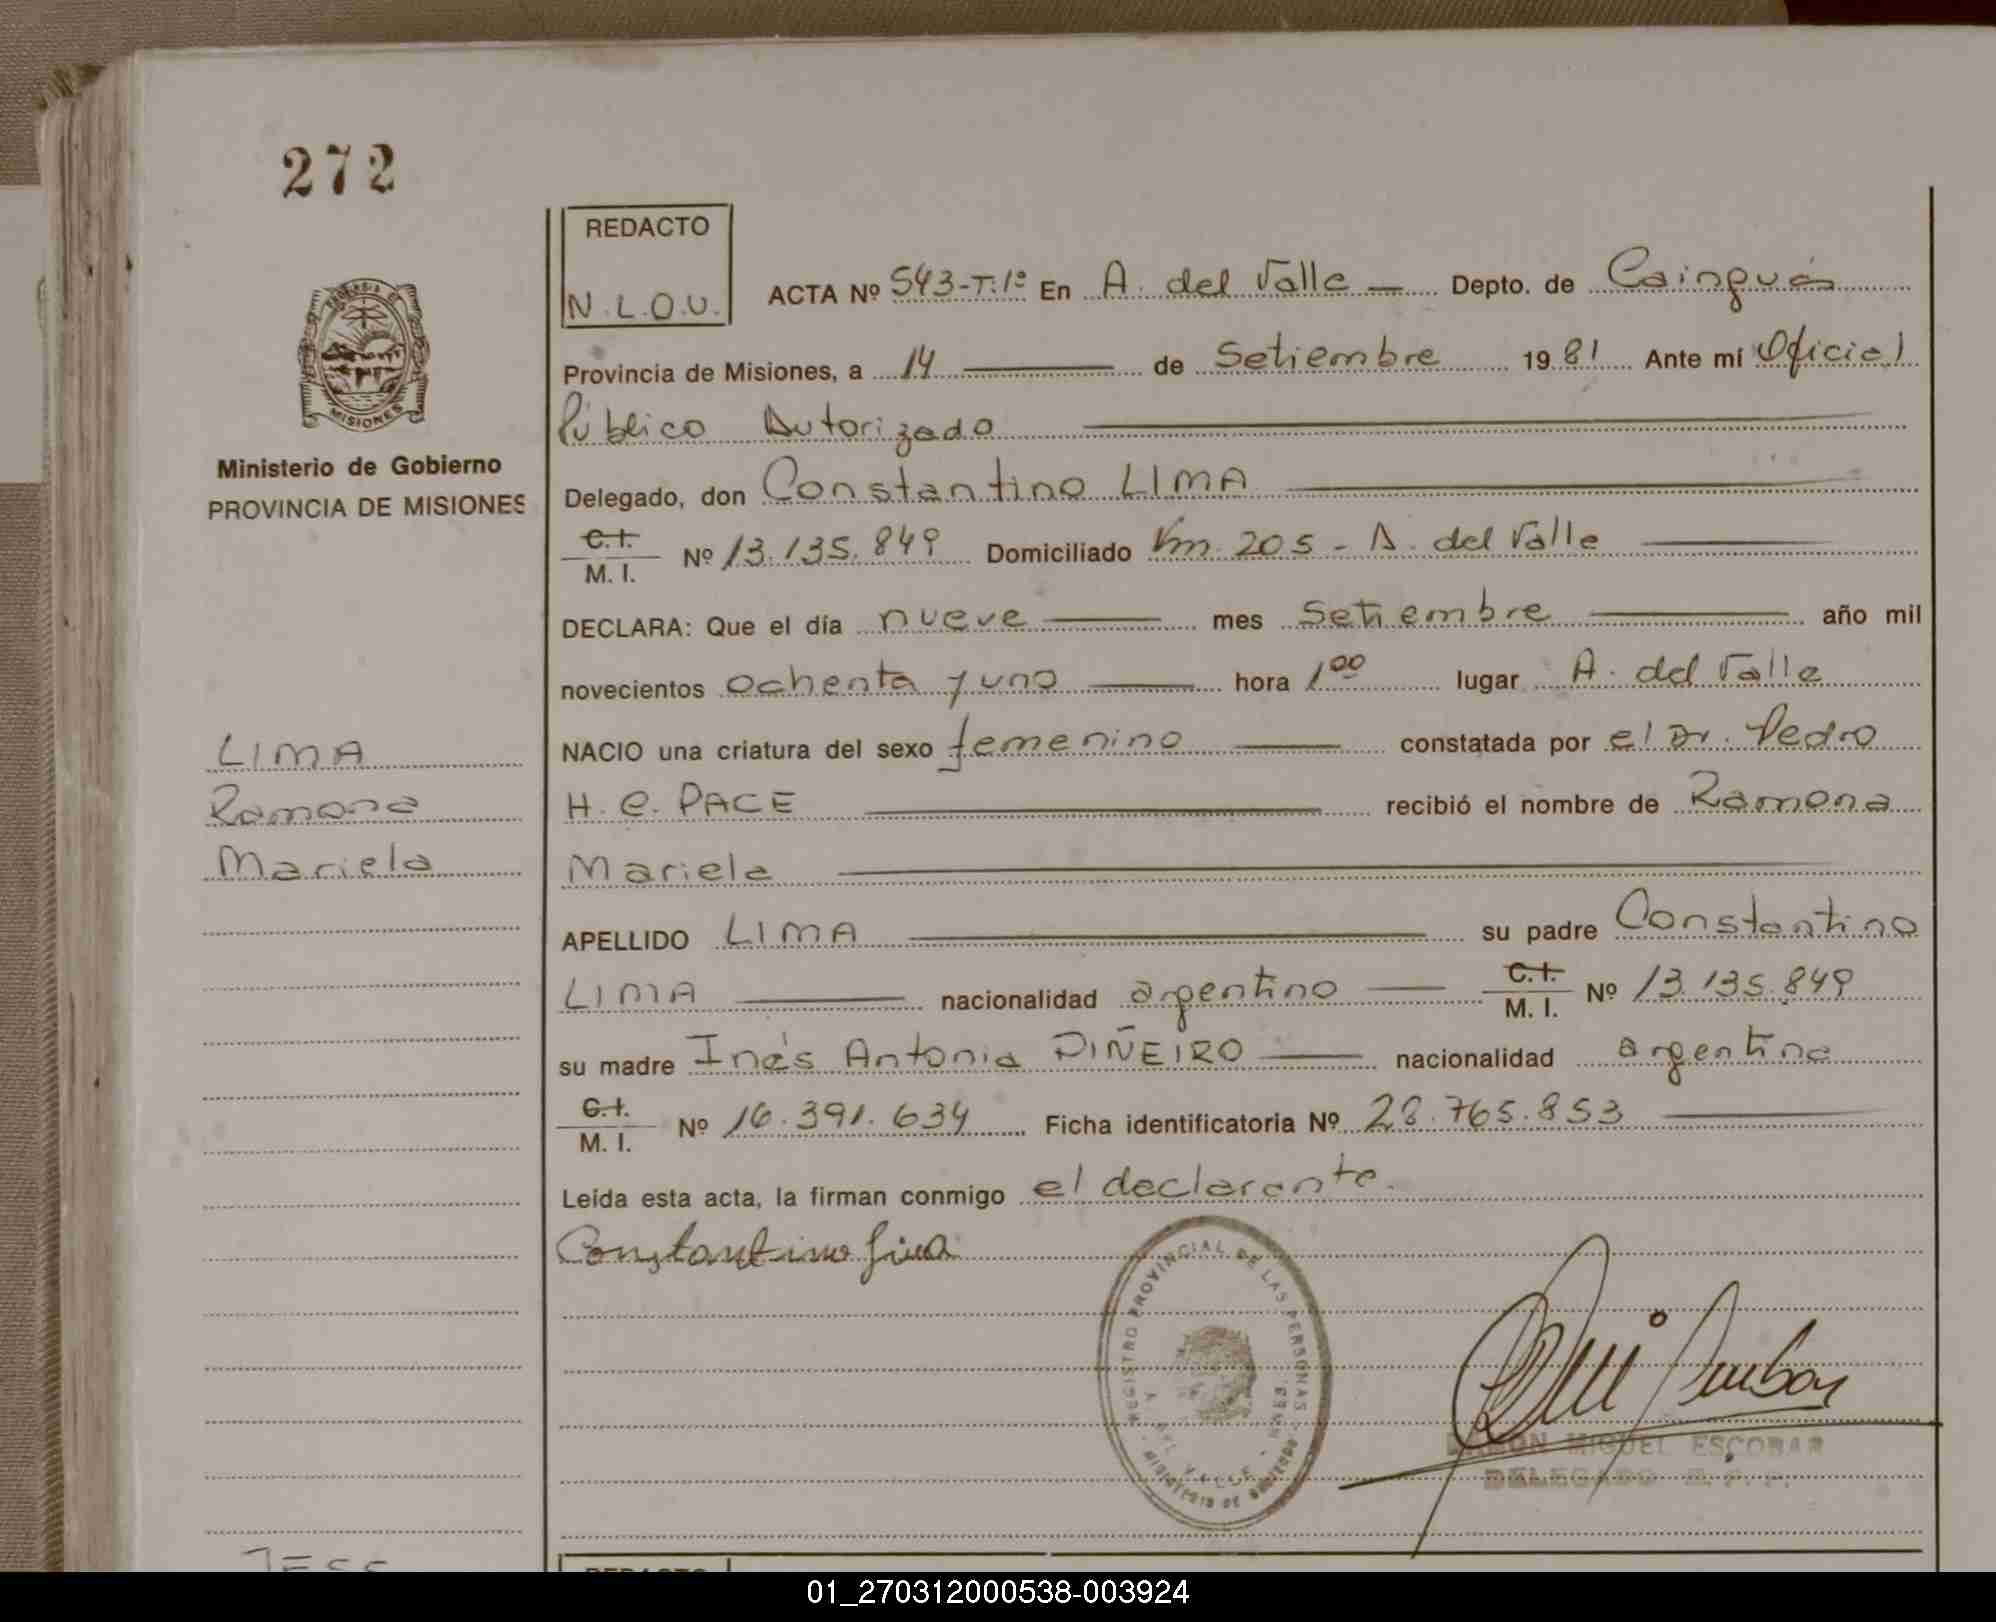 272
REDACTO
N.L.O.U.
ACTA Nº 543-T:1º En A. del Valle — Depto. de Cainguás
Provincia de Misiones, a 14 de Setiembre 1981 Ante mí Oficial
Público Autorizado
Delegado, don Constantino LIMA
C.I. M. I. Nº 13.135.849 Domiciliado Km. 205 - A. del Valle
DECLARA: Que el día nueve mes Setiembre año mil
novecientos ochenta y uno hora 1 00 lugar A. del Valle
NACIO una criatura del sexo femenino constatada por el Dr. Pedro
H. C. PACE recibió el nombre de Ramona
Mariela
APELLIDO LIMA su padre Constantino
LIMA nacionalidad argentino C.I. M. I. Nº 13.135.849
su madre Inés Antonia PIÑEIRO nacionalidad argentina
C.I. M. I. Nº 16.391.634 Ficha identificatoria Nº 28.765.853
Leída esta acta, la firman conmigo el declarante.
Constantino Lima
PROVINCIA DE
MISIONES
Ministerio de Gobierno
PROVINCIA DE MISIONES
LIMA
Ramona
Mariela
REGISTRO PROVINCIAL DE LAS PERSONAS
A. DEL VALLE
MINISTERIO DE GOBIERNO
RAMON MIGUEL ESCOBAR
DELEGADO R.P.P.
REDACTO
01_270312000538-003924